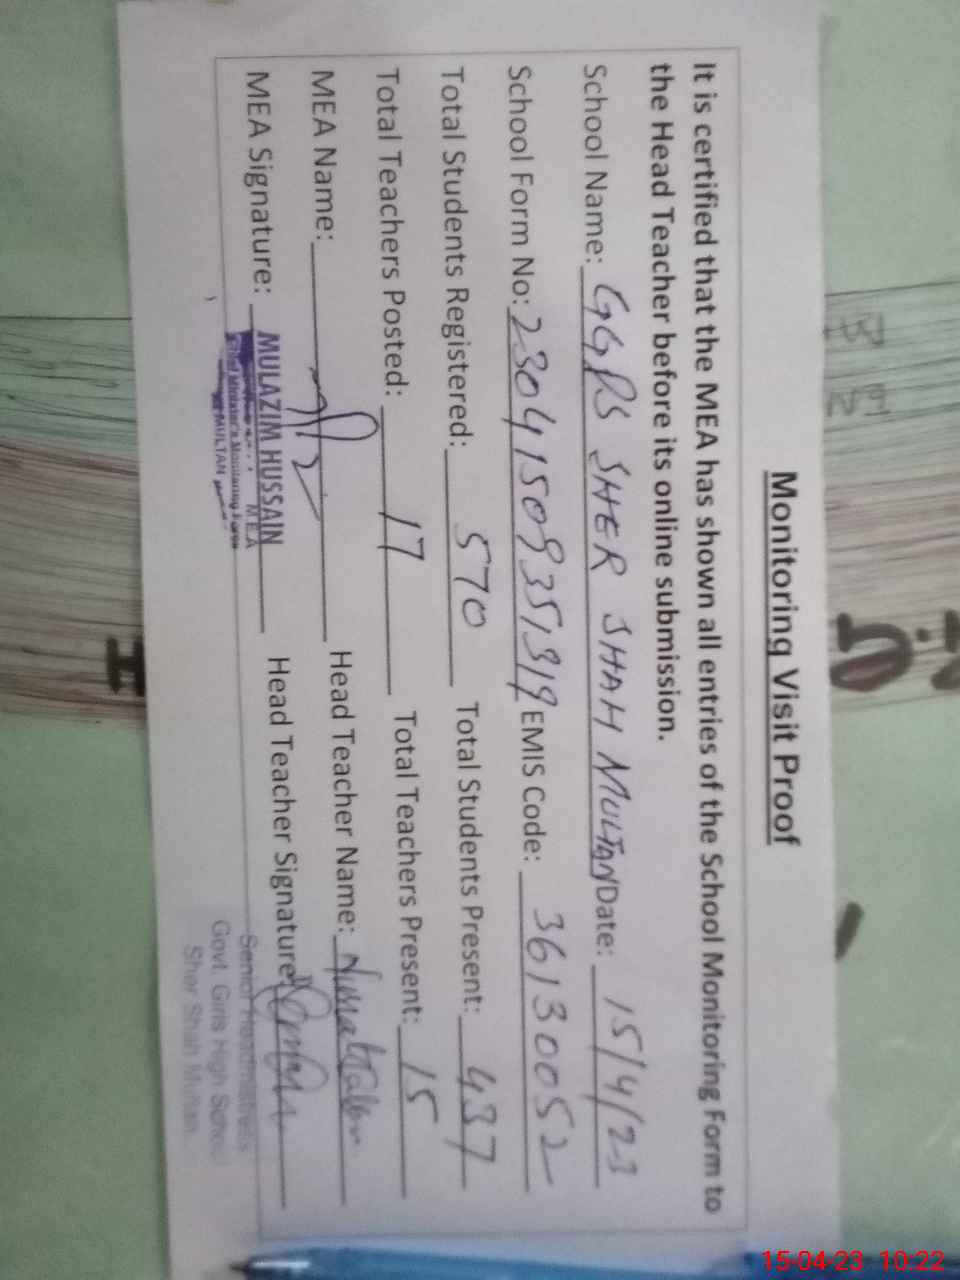 Monitoring Visit Proof
It is certified that the MEA has shown all entries of the School Monitoring Form to
the Head Teacher before its online submission.
School Name: GGPS SHER SHAH MULTAN Date: 15/4/23
School Form No: EMIS Code: 36130052
Total Students Registered: 570 Total Students Present: 437
Total Teachers Posted: 17 Total Teachers Present: 15
MEA Name: Head Teacher Name:
MEA Signature: Head Teacher Signature:
MULAZIM HUSSAIN
M.E.A
Chief Minister's Monitoring Force
MULTAN
Senior Headmistress
Govt. Girls High School
Sher Shah Multan.
15-04-23 10:22